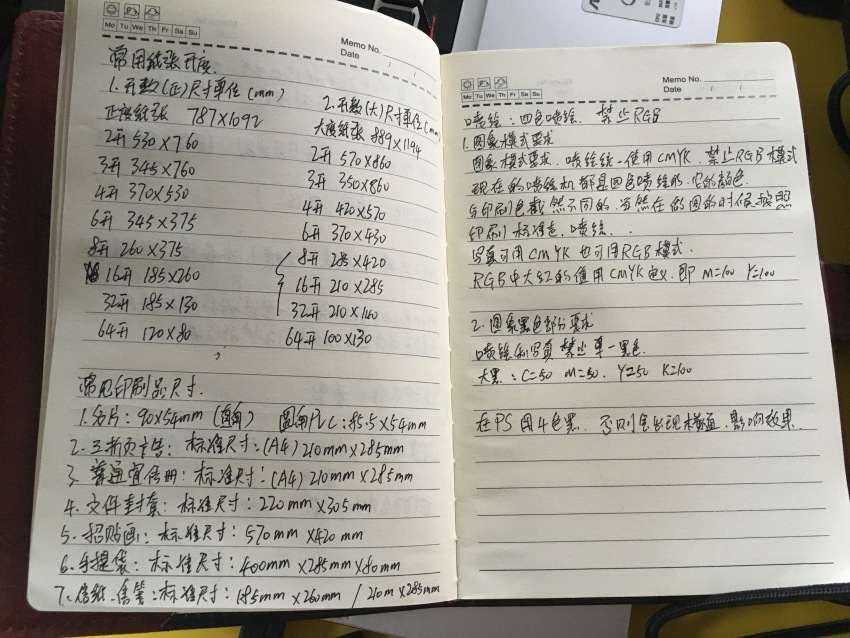 Memo No.
Date / /
Mo Tu We Th Fr Sa Su
常用纸张开度
1. 开数(正)尺寸单位(mm)
正度纸张 787×1092
2开 530×760
3开 345×760
4开 370×530
6开 345×375
8开 260×375
16开 185×260
32开 185×130
64开 120×80
2. 开数(大)尺寸单位(mm)
大度纸张 889×1194
2开 570×860
3开 350×860
4开 420×570
6开 370×430
8开 285×420
16开 210×285
32开 210×140
64开 100×130
常见印刷品尺寸.
1. 名片: 90×54mm (直角) 圆角PVC: 85.5×54mm
2. 三折页广告: 标准尺寸: (A4) 210mm×285mm
3. 普通宣传册: 标准尺寸: (A4) 210mm×285mm
4. 文件封套: 标准尺寸: 220mm×305mm
5. 招贴画: 标准尺寸: 570mm×420mm
6. 手提袋: 标准尺寸: 400mm×285mm×80mm
7. 信纸.信笺: 标准尺寸: 185mm×260mm / 210m×285mm
Memo No.
Date / /
Mo Tu We Th Fr Sa Su
喷绘: 四色喷绘. 禁止RGB
1. 图象模式要求
图象模式要求. 喷绘统一使用CMYK. 禁止RGB模式
现在的喷绘机都是四色喷绘的. 它的颜色.
与印刷色截然不同的. 当然在做图的时候按照
印刷标准走. 喷绘.
写真可用CMYK也可用RGB模式.
RGB中大红的值用CMYK定义. 即 M=100 Y=100
2. 图象黑色部分要求
喷绘和写真禁止单一黑色.
大黑: C=50 M=50. Y=50 K=100
在PS用4色黑. 否则会出现横道. 影响效果.